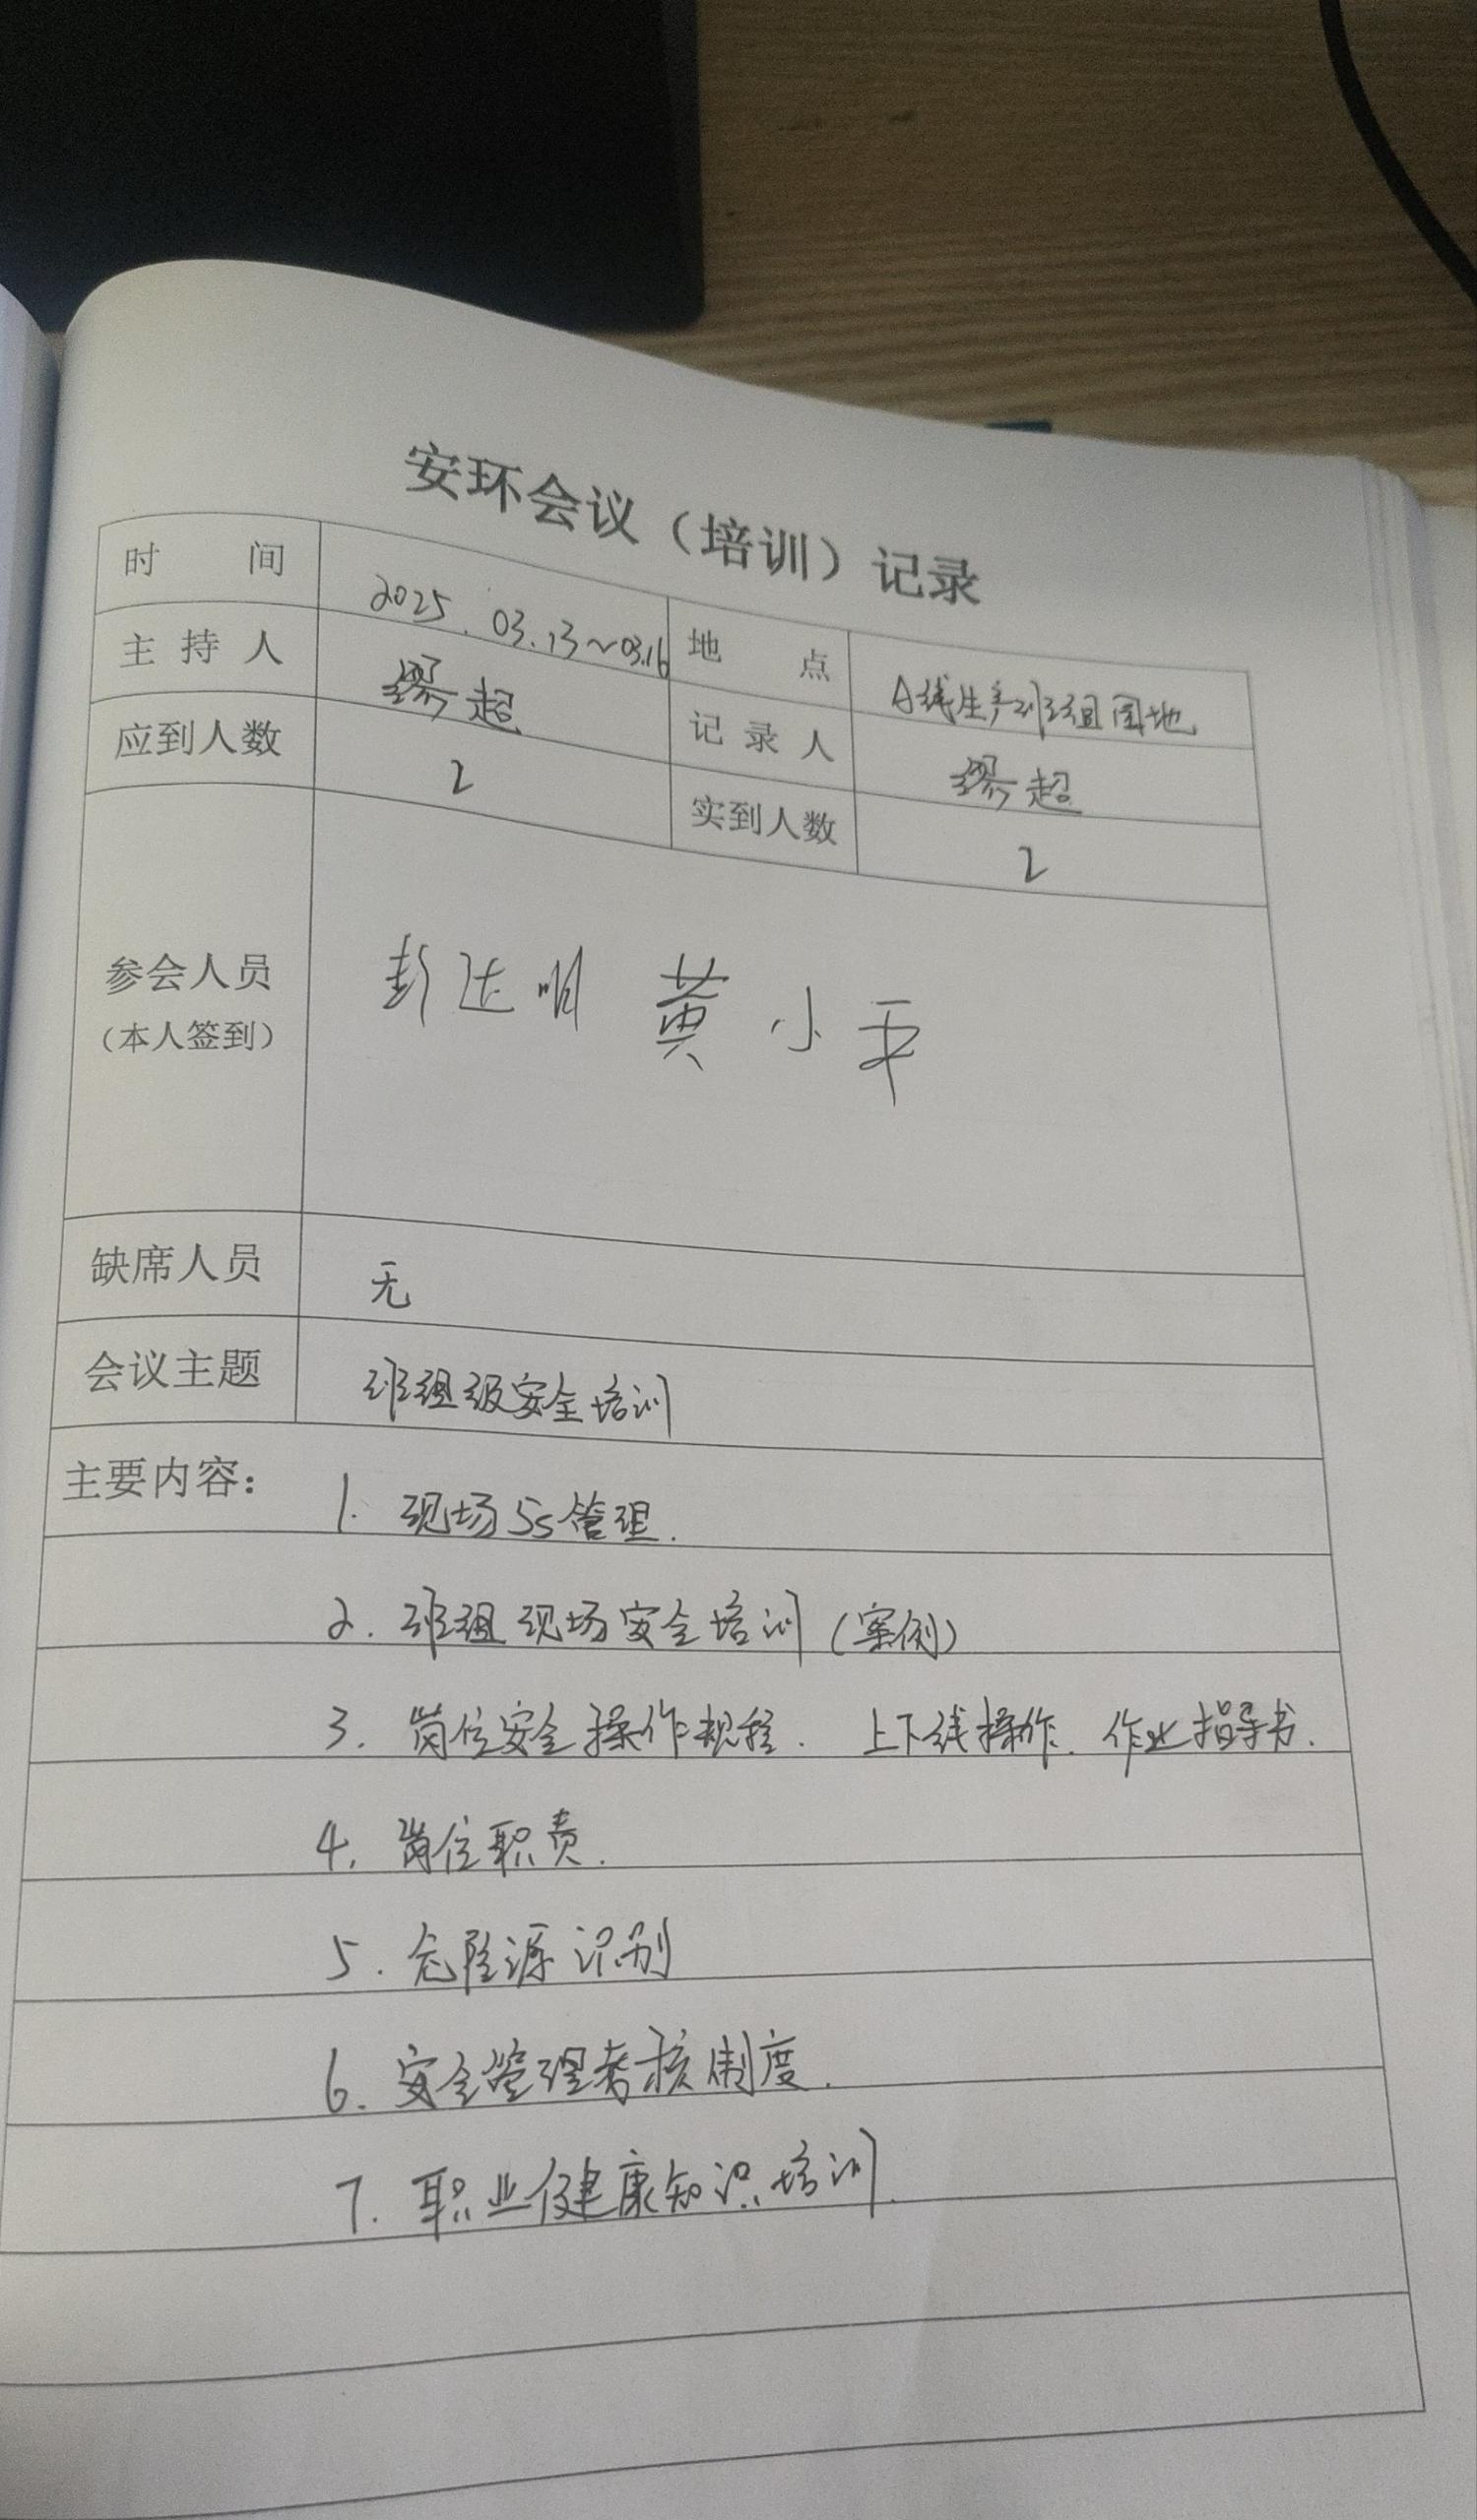 安环会议（培训）记录
时 间 2025.03.13~03.16 地 点 A线生产班组园地
主持人 缪超 记录人 缪超
应到人数 2 实到人数 2
参会人员 彭达明 黄小平
（本人签到）
缺席人员 无
会议主题 班组级安全培训
主要内容： 1. 现场5s管理.
2. 班组现场安全培训（案例）
3. 岗位安全操作规程. 上下线操作. 作业指导书.
4. 岗位职责.
5. 危险源识别
6. 安全管理考核制度.
7. 职业健康知识培训.